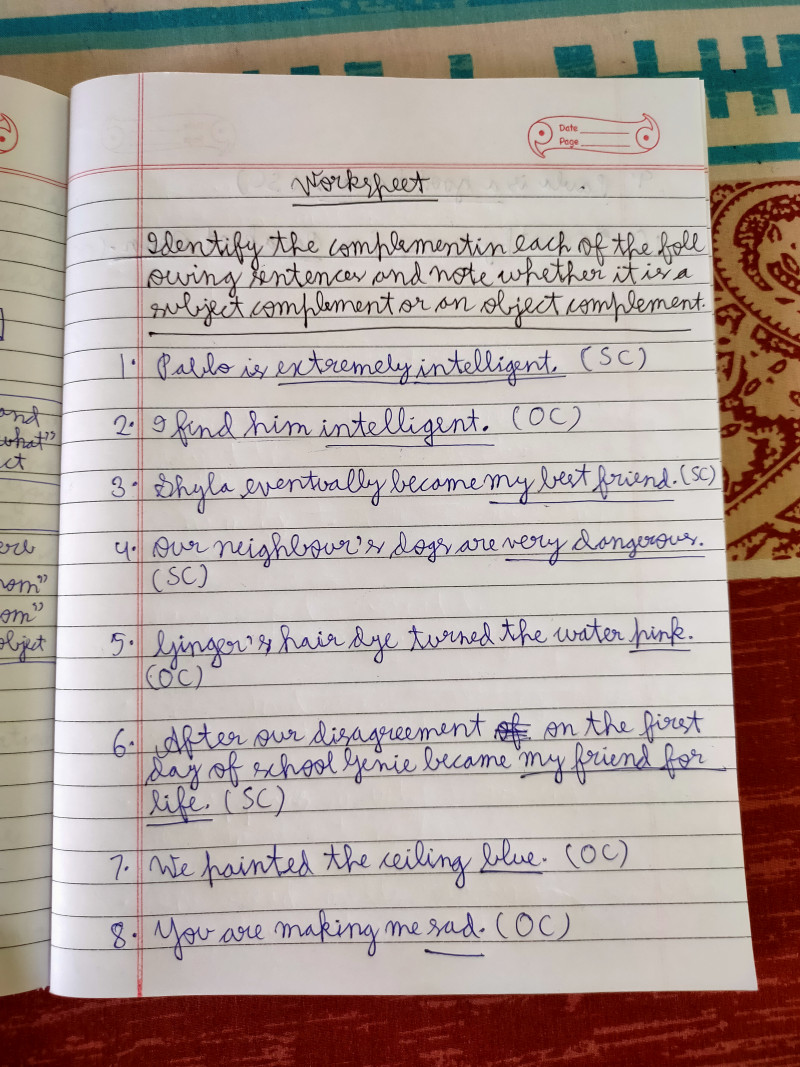 Date
Page
Worksheet
Identify the complementin each of the foll
owing sentences and note whether it is a
subject complement or an object complement.
1. Pablo is extremely intelligent. (SC)
2. I find him intelligent. (OC)
3. Shyla eventually became my best friend. (SC)
4. Our neighbour's dogs are very dangerous.
(SC)
5. Ginger's hair dye turned the water pink.
(OC)
6. After our disagreement of on the first
day of school Genie became my friend for
life. (SC)
7. We painted the ceiling blue. (OC)
8. You are making me sad. (OC)
and
what"
ct
ere
om"
om"
object